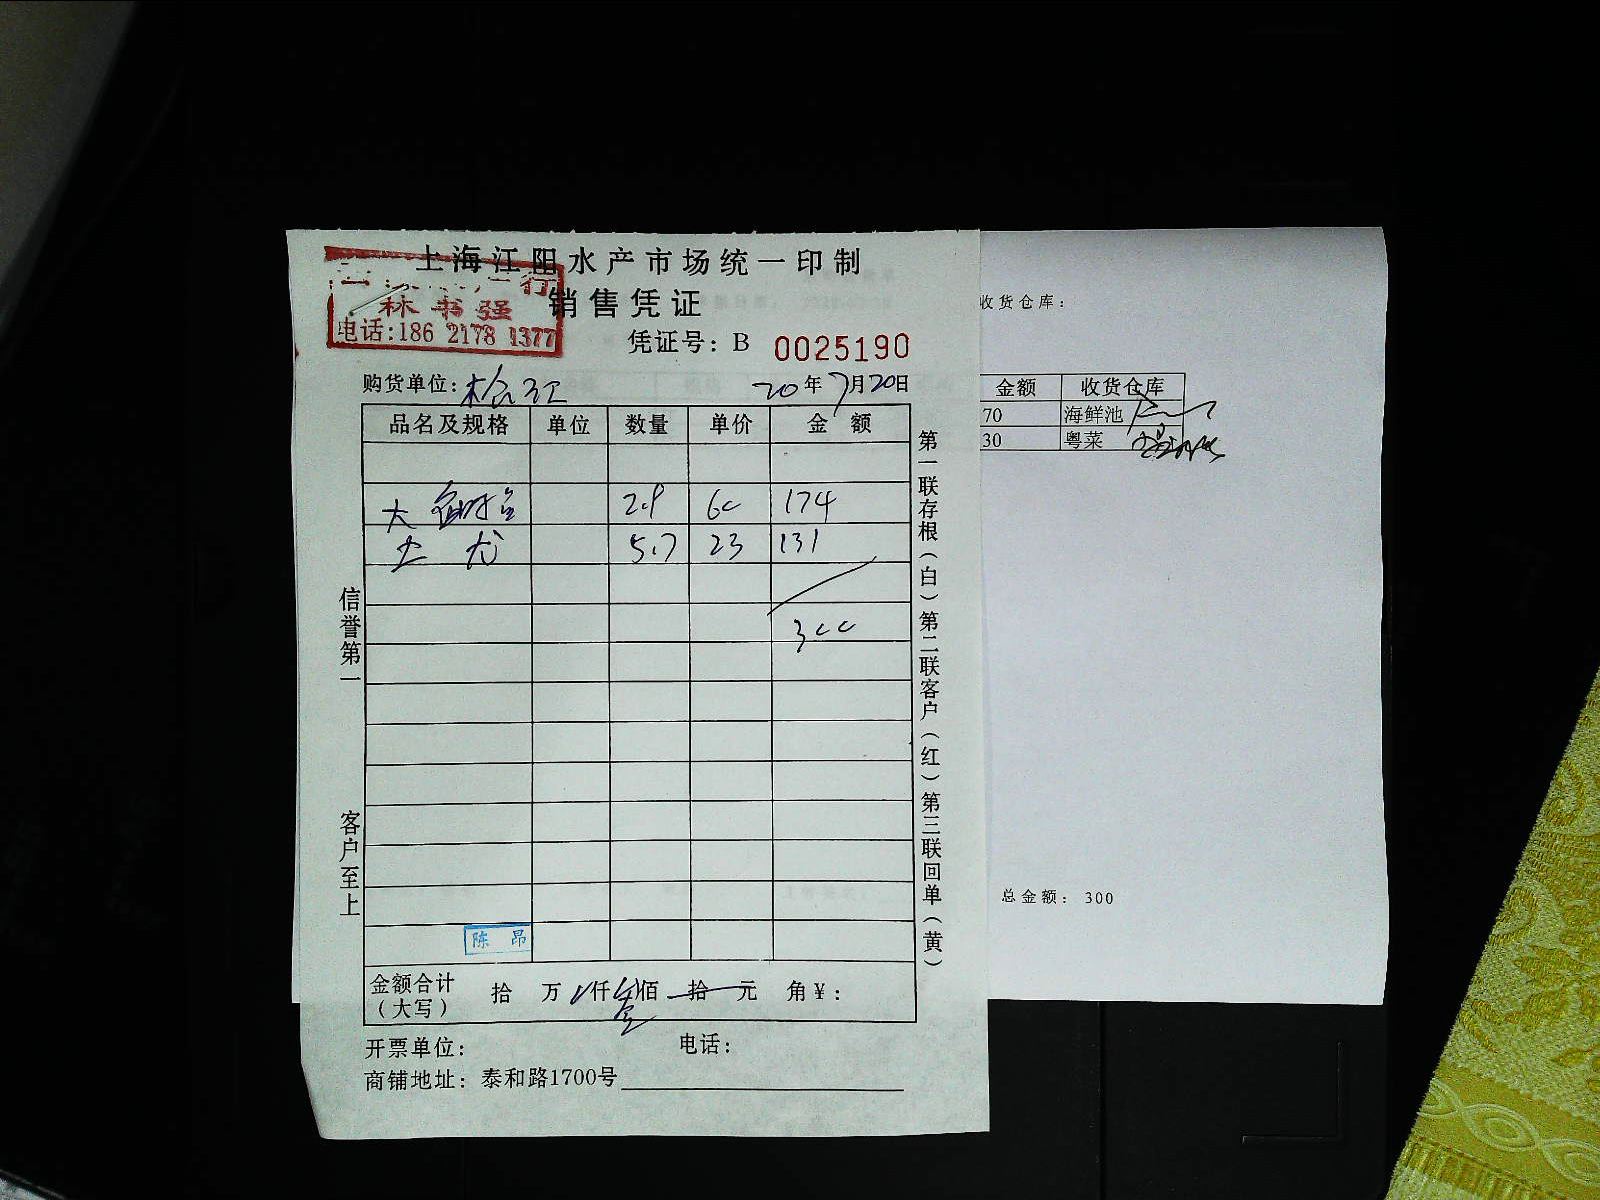 上海江阳水产市场统一印制
销售凭证
林书强
电话:186 2178 1377
凭证号: B 0025190
购货单位: 松江 20年7月20日
品名及规格 单位 数量 单价 金额
大 2.9 60 174
5.7 23 131
300
陈昂
金额合计(大写) 拾 万 仟 叁佰 拾 元 角 ¥:
开票单位: 电话:
商铺地址: 泰和路1700号
信誉第一 客户至上
第一联存根(白)第二联客户(红)第三联回单(黄)
收货仓库:
金额 收货仓库
70 海鲜池
30 粤菜
总金额: 300